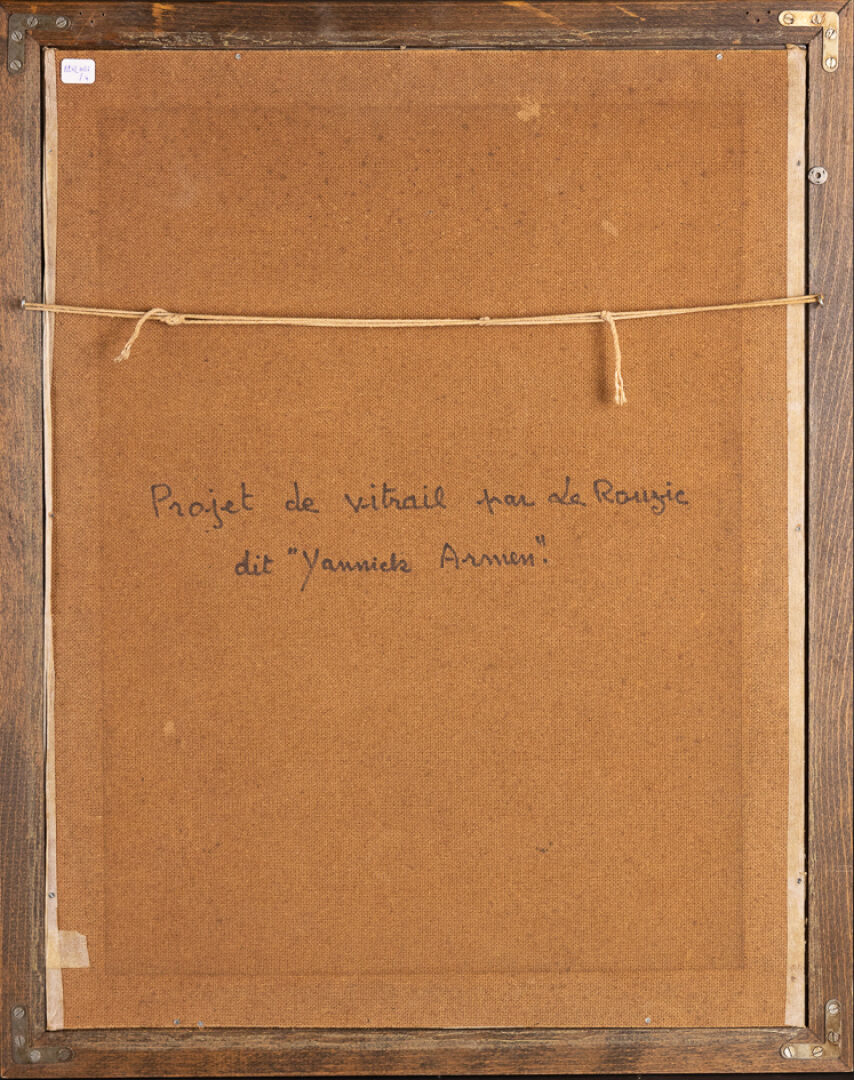 Projet de vitrail par Le Rouzic
dit "Yannick Armen".